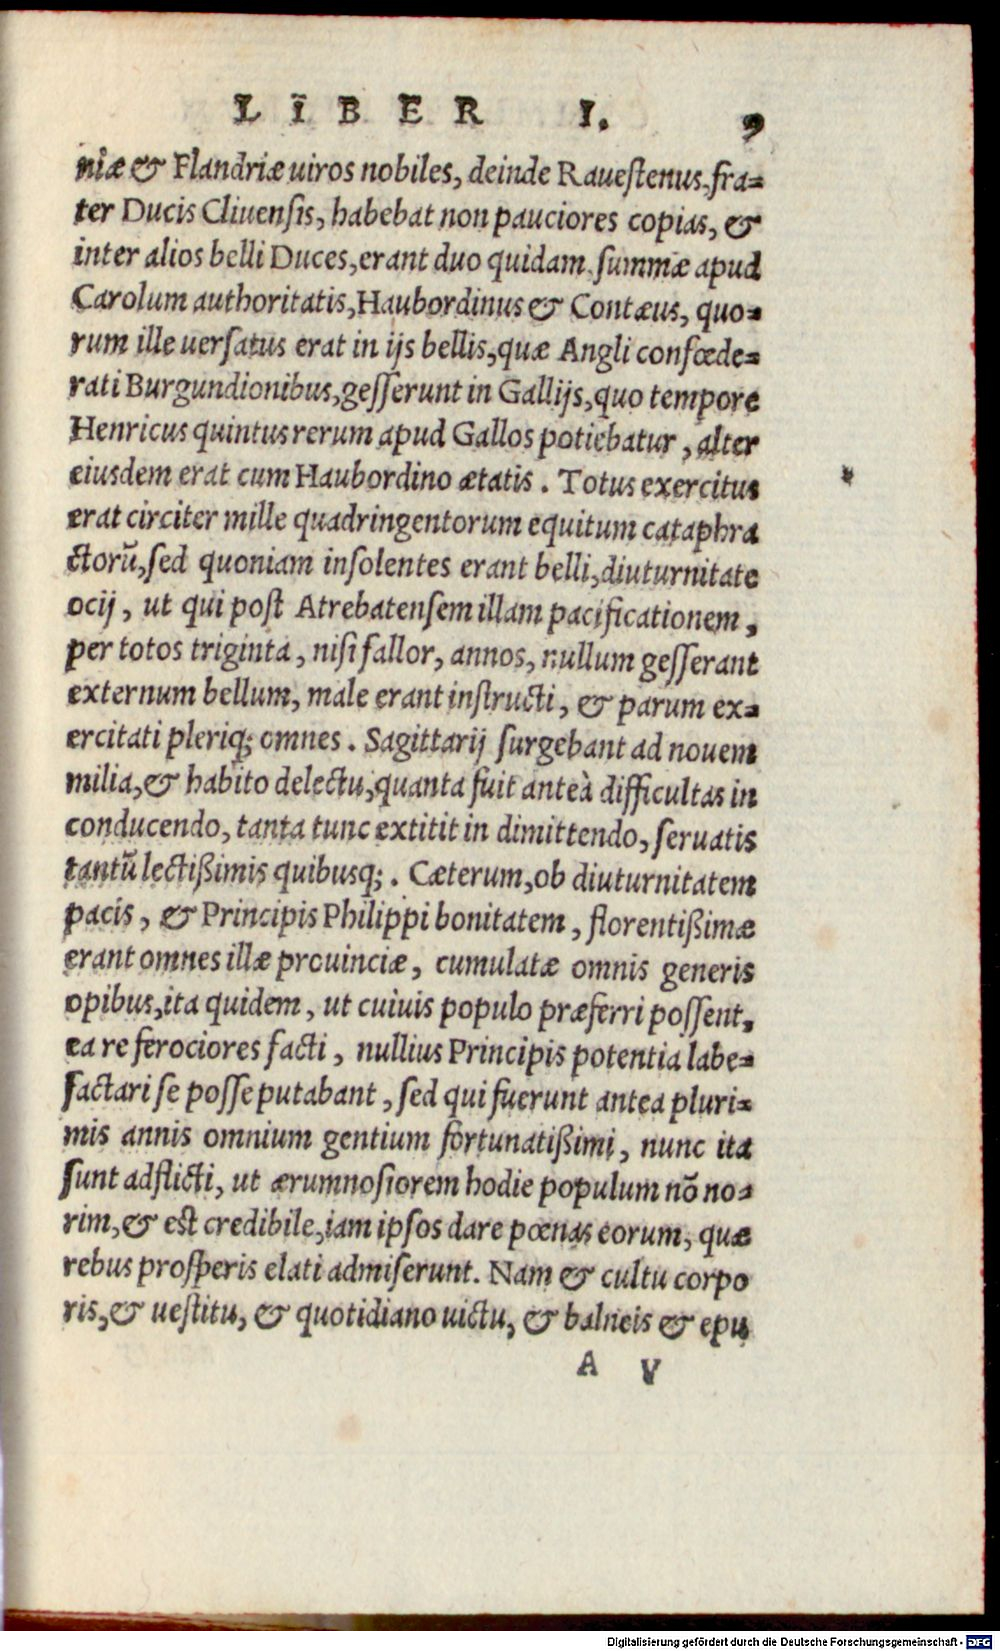 LIBER I. 9
niæ & Flandriæ uiros nobiles, deinde Rauestenus, fra-
ter Ducis Cliuensis, habebat non pauciores copias, &
inter alios belli Duces, erant duo quidam summæ apud
Carolum authoritatis, Haubordinus & Contæus, quo-
rum ille uersatus erat in ijs bellis, quæ Angli confœde-
rati Burgundionibus, gesserunt in Gallijs, quo tempore
Henricus quintus rerum apud Gallos potiebatur, alter
eiusdem erat cum Haubordino ætatis. Totus exercitus
erat circiter mille quadringentorum equitum cataphra
ctorũ, sed quoniam insolentes erant belli, diuturnitate
ocij, ut qui post Atrebatensem illam pacificationem,
per totos triginta, nisi fallor, annos, nullum gesserant
externum bellum, male erant instructi, & parum ex-
ercitati pleriq; omnes. Sagittarij surgebant ad nouem
milia, & habito delectu, quanta fuit anteà difficultas in
conducendo, tanta tunc extitit in dimittendo, seruatis
tantũ lectißimis quibusq;. Cæterum, ob diuturnitatem
pacis, & Principis Philippi bonitatem, florentißimæ
erant omnes illæ prouinciæ, cumulatæ omnis generis
opibus, ita quidem, ut cuiuis populo præferri possent,
ea re ferociores facti, nullius Principis potentia labe-
factari se posse putabant, sed qui fuerunt antea pluri-
mis annis omnium gentium fortunatißimi, nunc ita
sunt adflicti, ut ærumnosiorem hodie populum nõ no-
rim, & est credibile, iam ipsos dare pœnas eorum, quæ
rebus prosperis elati admiserunt. Nam & cultu corpo
ris, & uestitu, & quotidiano uictu, & balneis & epu
A V
Digitalisierung gefördert durch die Deutsche Forschungsgemeinschaft - DFG